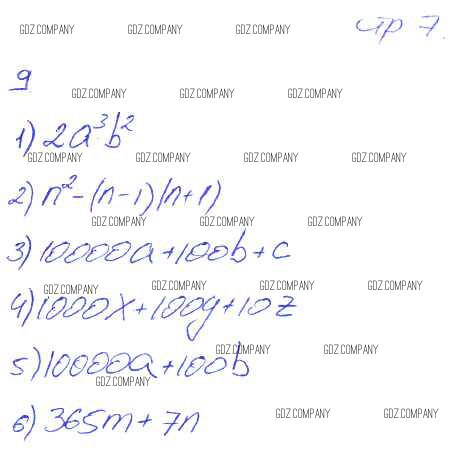 стр 7.
GDZ.COMPANY GDZ.COMPANY GDZ.COMPANY
9
GDZ.COMPANY GDZ.COMPANY GDZ.COMPANY
1) 2a³b²
GDZ.COMPANY GDZ.COMPANY GDZ.COMPANY GDZ.COMPANY
2) n² - (n - 1)(n + 1)
GDZ.COMPANY GDZ.COMPANY GDZ.COMPANY
3) 10000a + 100b + c
GDZ.COMPANY GDZ.COMPANY GDZ.COMPANY GDZ.COMPANY
4) 1000x + 100y + 10z
GDZ.COMPANY GDZ.COMPANY
5) 10000a + 100b
GDZ.COMPANY
6) 365m + 7n
GDZ.COMPANY GDZ.COMPANY